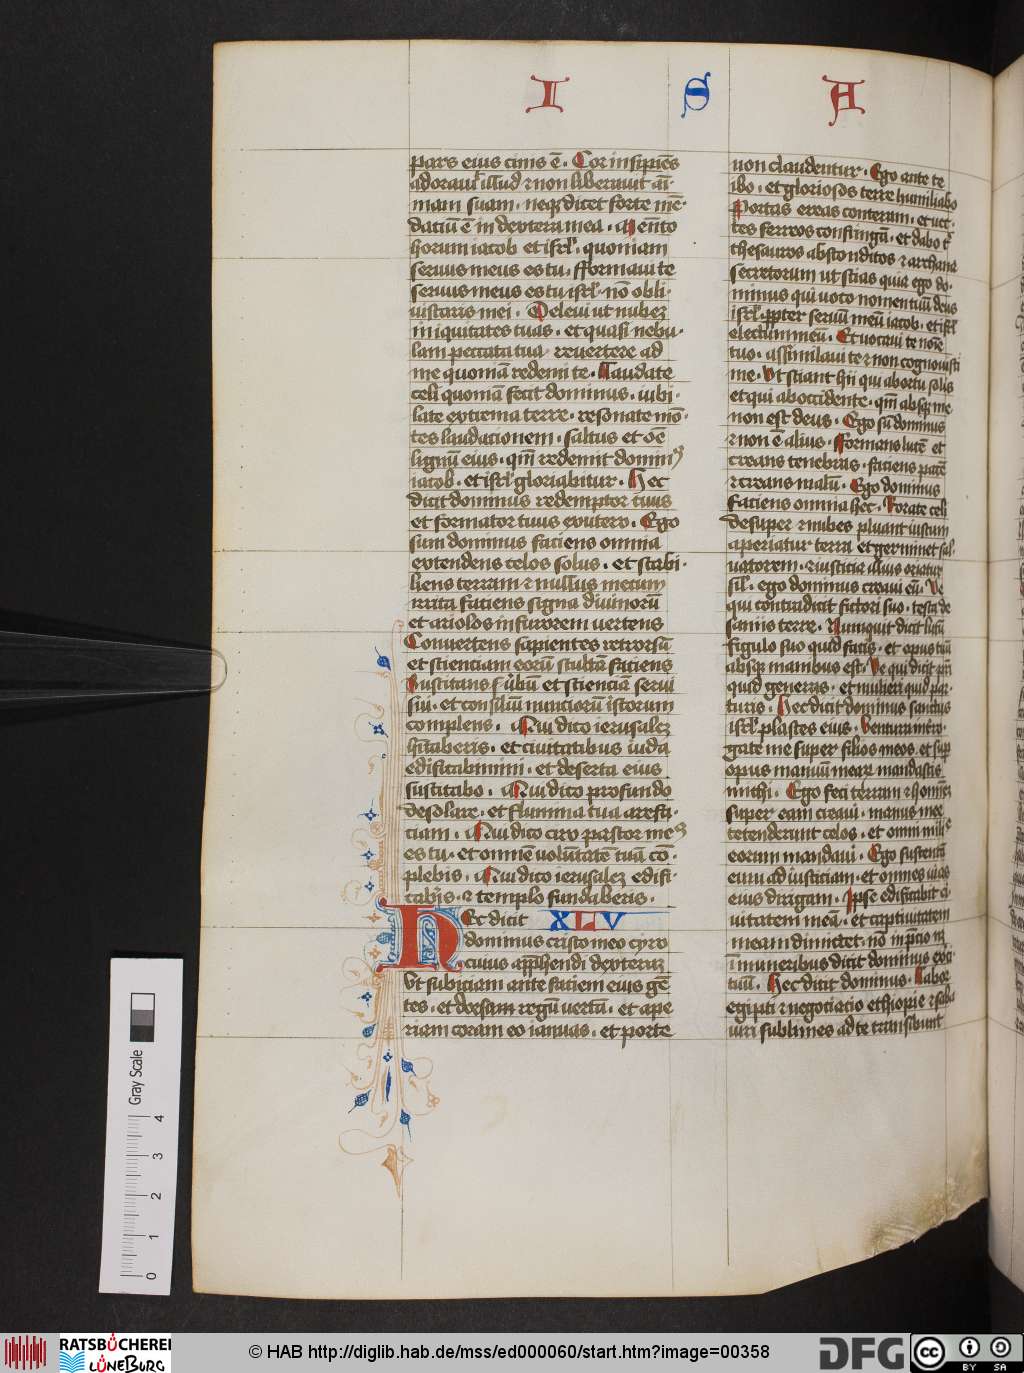 I S A
pars eius cinis ē. Cor insipiēs
adorauit illud ⁊ non liberauit aī
mam suam. neqꝫ dicet forte mē
daciū ē in dextera mea. Memto
horum iacob et isrl̄. quoniam
seruus meus es tu. fformaui te
seruus meus es tu isrl̄. nō obli
uiscaris mei. Deleui ut nubez
iniquitates tuas. et quasi nebu
lam peccata tua. reuertere ad
me quoniā redemi te. Laudate
celi quoniā fecit dominus. iubi
late extrema terre. resonate mō
tes laudacionem. saltus et oē
lignū eius. qm̄ redemit domin⁹
iacob. et isrl̄ gloriabitur. Hec
dicit dominus redemptor tuus
et formator tuus ex utero. Ego
sum dominus faciens omnia
extendens celos solus. et stabi
liens terram ⁊ nullus mecum
irrita faciens signa diuinorū
et ariolos in furorem uertens
Conuertens sapientes retrorsū
et scienciam eorū stultā faciens
Suscitans ūbū et scienciā serui
sui. et consiliū nunciorū istorum
complens. Qui dico ierusalez
hītaberis. et ciuitatibus iuda
edificabimini. et deserta eius
suscitabo. Qui dico profundo
desolare. et flumina tua arefa
ciam. Qui dico ciro pastor me⁹
es tu. et omnē uolūtatē tuā cō
plebis. Qui dico ierusalez edifi
caberis. ⁊ templo fundaberis.
Hec dicit XLV
dominus cristo meo cyro
cuius apphendi dexteraz
Vt subiciam ante faciem eius gē
tes. et dorsam regū uertā. et ape
riam coram eo ianuas. et porte
non claudentur. Ego ante te
ibo. et gloriosos terre humiliabo
Portas ereas conteram. et uec
tes ferreos confringā. et dabo t'
thesauros absconditos ⁊ archana
secretorum ut scias quia ego do
minus qui uoco nomen tuū deus
isrl̄. ppter seruū meū iacob. et isrl̄
electum meū. Et uocaui te noīe
tuo. assimilaui te ⁊ non cognouisti
me. Vt sciant hii qui ab ortu solis
et qui ab occidente. qm̄ absqꝫ me
non est deus. Ego sū dominus
⁊ non ē alius. fformans lucē et
creans tenebras. faciens pacē
⁊ creans malū. Ego dominus
faciens omnia hec. Rorate celi
desuper ⁊ nubes pluant iustum
aperiatur terra et germinet sal
uatorem. ⁊ iusticia illius oriatur
sil̄. ego dominus creaui eū. Ve
qui contradicit fictori suo. testa de
samis terre. Numquit dicit lutū
figulo suo quid facis. et opus tuū
absqꝫ manibus est. Ve qui dicit pri
quid generas. et mulieri quid par
turis. Hec dicit dominus sanctus
isrl̄. plastes eius. Ventura intro
gate me super filios meos. et sup
opus manuū mearꝝ mandastis
michi. Ego feci terram ⁊ hominē
super eam creaui. manus mee
tetenderunt celos. et omni milic
eorum mandaui. Ego suscitaui
eum ad iusticiam. et omnes uias
eius dirigam. Ipse edificabit ci
uitatem meā. et captiuitatem
meam dimittet. nō in p̄cio nꝫ
ī muneribus dicit dominus exci
tuū. Hec dicit dominus. Labor
egipti ⁊ negociacio ethiopie ⁊ saba
uiri sublimes ad te transibunt
Gray Scale
0 1 2 3 4
RATSBÜCHEREI
LÜNEBURG
© HAB http://diglib.hab.de/mss/ed000060/start.htm?image=00358
DFG
cc BY SA